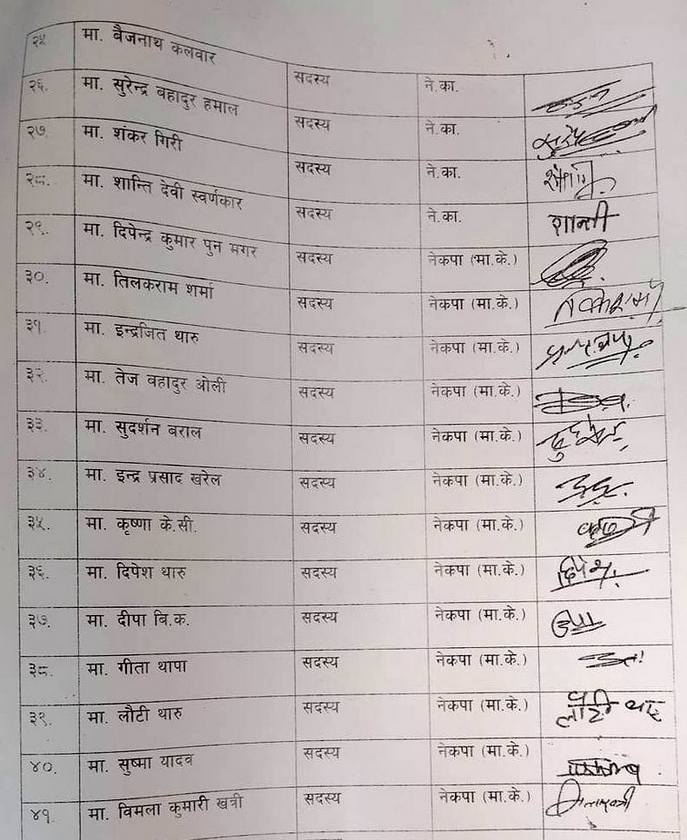 २५ मा. बैजनाथ कलवार सदस्य ने.का.
२६. मा. सुरेन्द्र बहादुर हमाल सदस्य ने.का.
२७. मा. शंकर गिरी सदस्य ने.का.
२८. मा. शान्ति देवी स्वर्णकार सदस्य ने.का. शान्ती
२९. मा. दिपेन्द्र कुमार पुन मगर सदस्य नेकपा (मा.के.)
३०. मा. तिलकराम शर्मा सदस्य नेकपा (मा.के.)
३१. मा. इन्द्रजित थारु सदस्य नेकपा (मा.के.)
३२. मा. तेज वहादुर ओली सदस्य नेकपा (मा.के.)
३३. मा. सुदर्शन बराल सदस्य नेकपा (मा.के.)
३४. मा. इन्द्र प्रसाद खरेल सदस्य नेकपा (मा.के.)
३५. मा. कृष्णा के.सी. सदस्य नेकपा (मा.के.)
३६. मा. दिपेश थारु सदस्य नेकपा (मा.के.)
३७. मा. दीपा बि.क. सदस्य नेकपा (मा.के.)
३८. मा. गीता थापा सदस्य नेकपा (मा.के.)
३९. मा. लौटी थारु सदस्य नेकपा (मा.के.)
४०. मा. सुष्मा यादव सदस्य नेकपा (मा.के.)
४१. मा. विमला कुमारी खत्री सदस्य नेकपा (मा.के.)